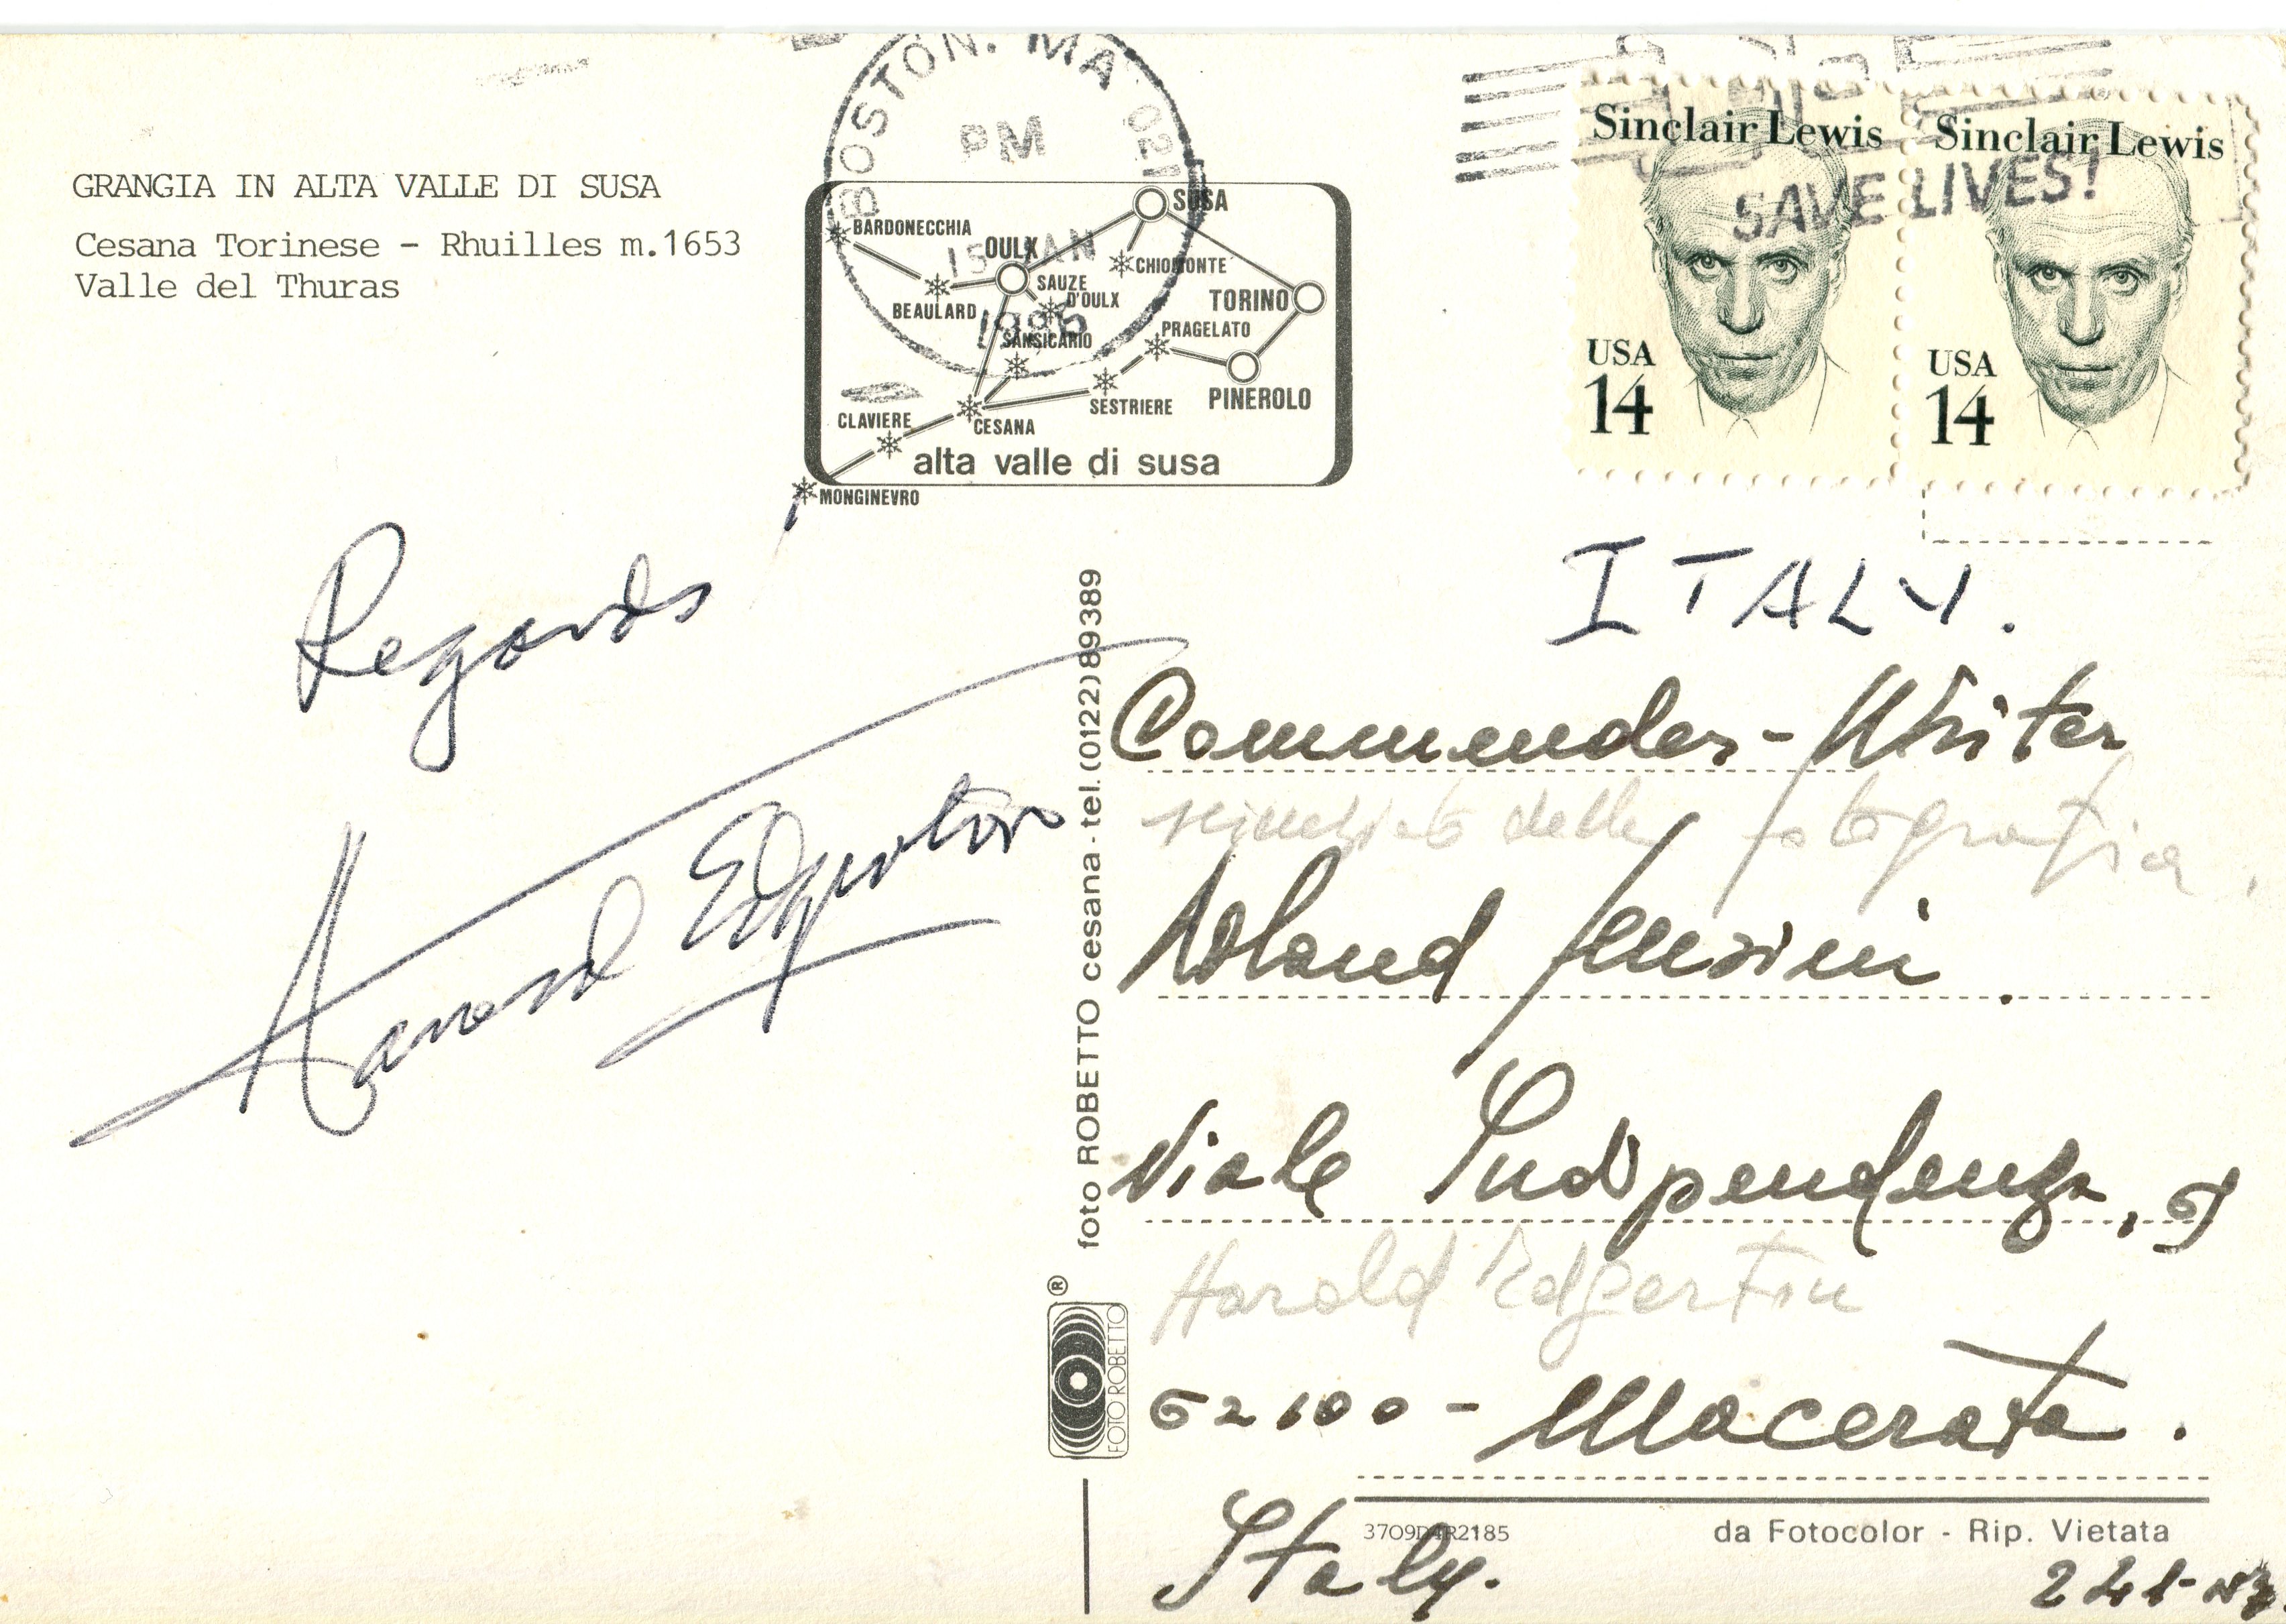 GRANGIA IN ALTA VALLE DI SUSA
Cesana Torinese - Rhuilles m.1653
Valle del Thuras
BOSTON. MA 021
PM
15 JAN
SUSA
BARDONECCHIA
OULX
CHIOMONTE
SAUZE
D'OULX
BEAULARD
TORINO
SANSICARIO
PRAGELATO
PINEROLO
SESTRIERE
CLAVIERE
CESANA
alta valle di susa
MONGINEVRO
Sinclair Lewis
USA
14
Sinclair Lewis
USA
14
SAVE LIVES!
Regards
Harold Edgerton
foto ROBETTO cesana - tel. (0122) 89389
®
FOTO ROBETTO
ITALY.
Commender - Writer
della fotografia.
Viale Indipendenza,
Harold Edgerton
62100 - Macerata.
Italy.
da Fotocolor - Rip. Vietata